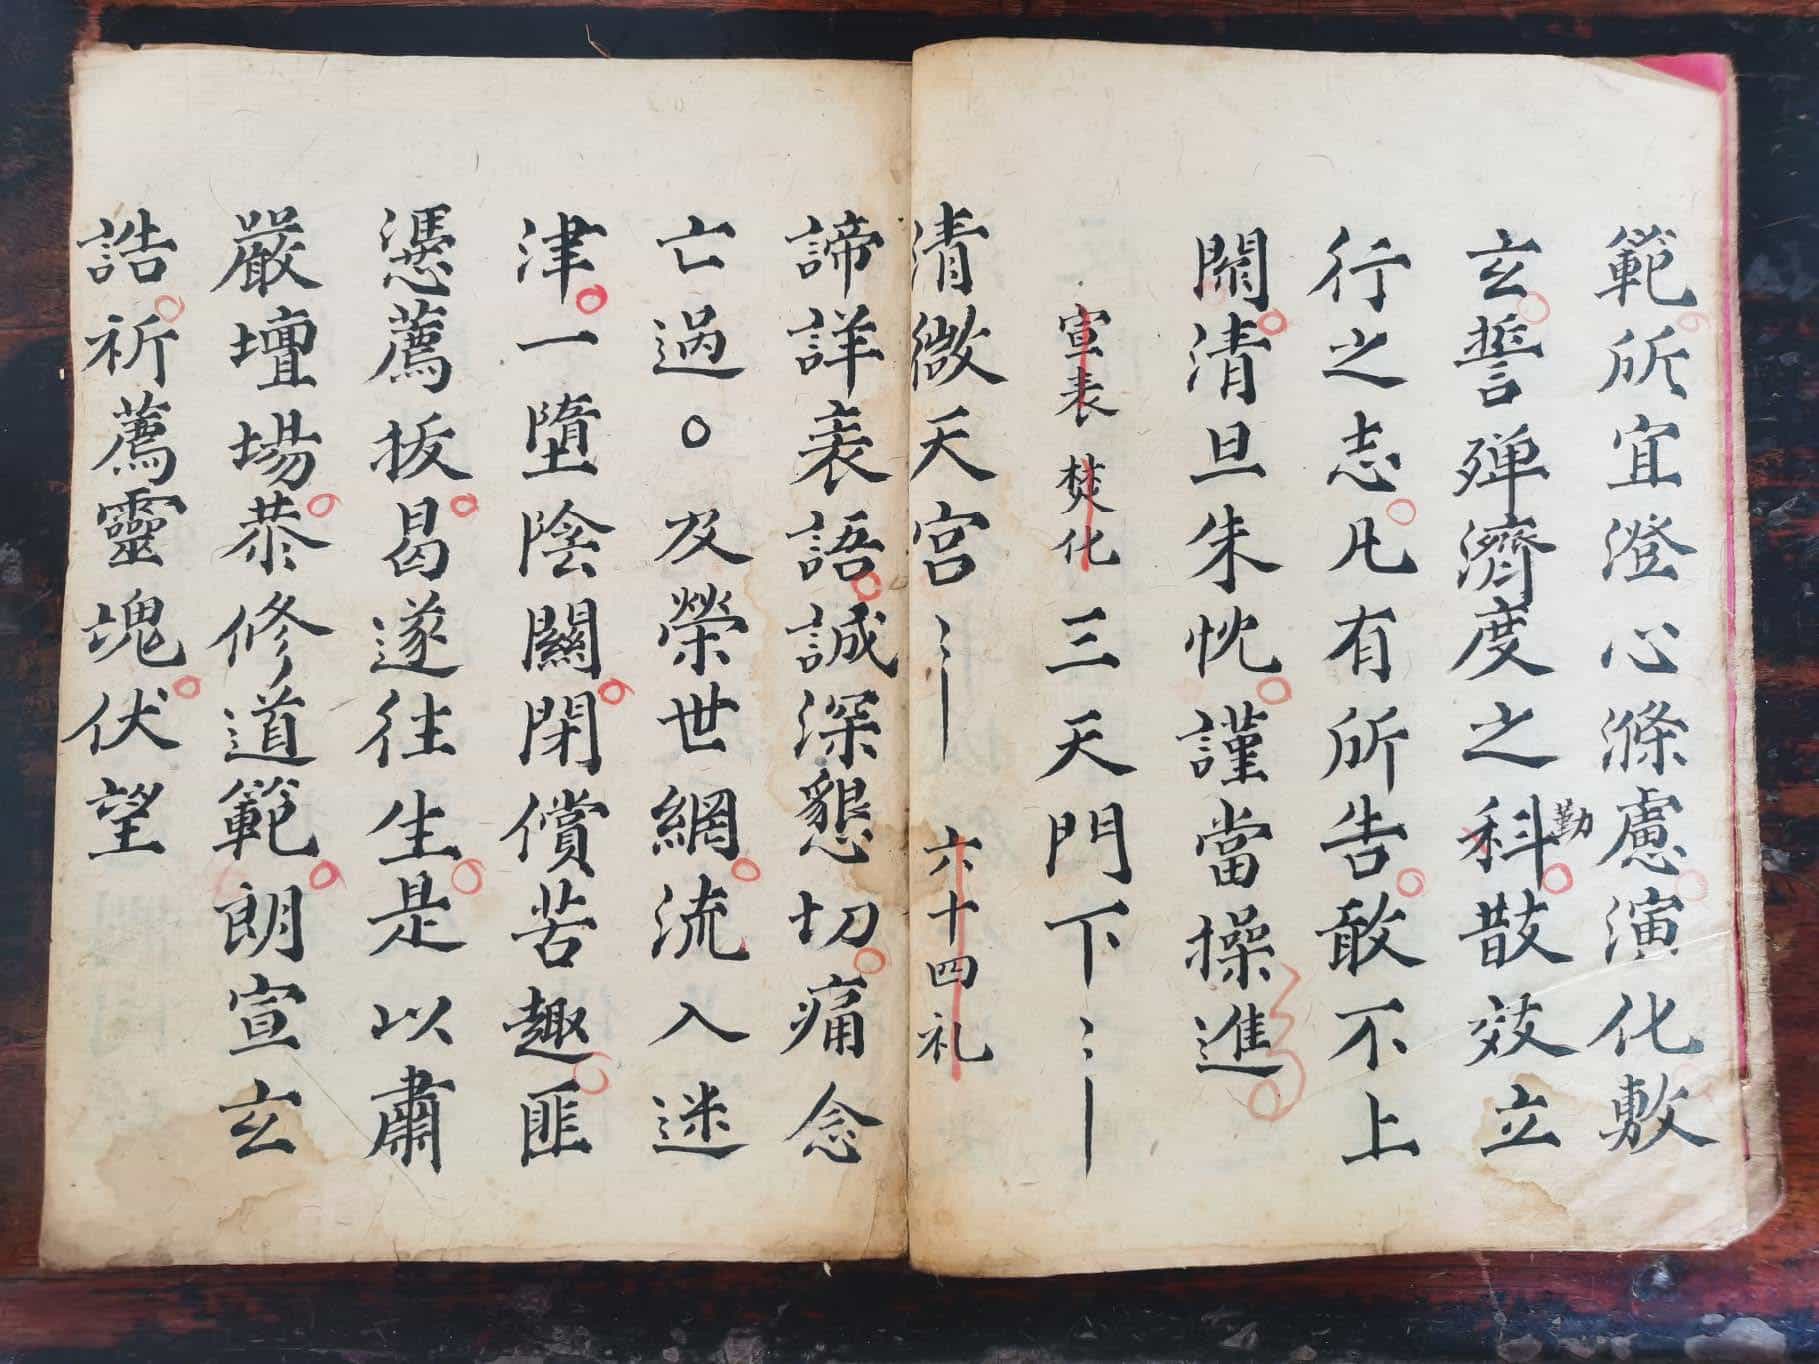 範所宜澄心滌慮演化敷
玄誓殫濟度之科散效立
勤
行之志凡有所告敢不上
關清旦朱忱謹當操進
宣表 焚化 三天門下
清微天宮 六十四礼
諦詳表語誠深懇切痛念
亡過〇及榮世網流入迷
津一墮陰關閉償苦趣匪
憑薦拔曷遂往生是以肅
嚴壇場恭修道範朗宣玄
誥祈薦靈魂伏望